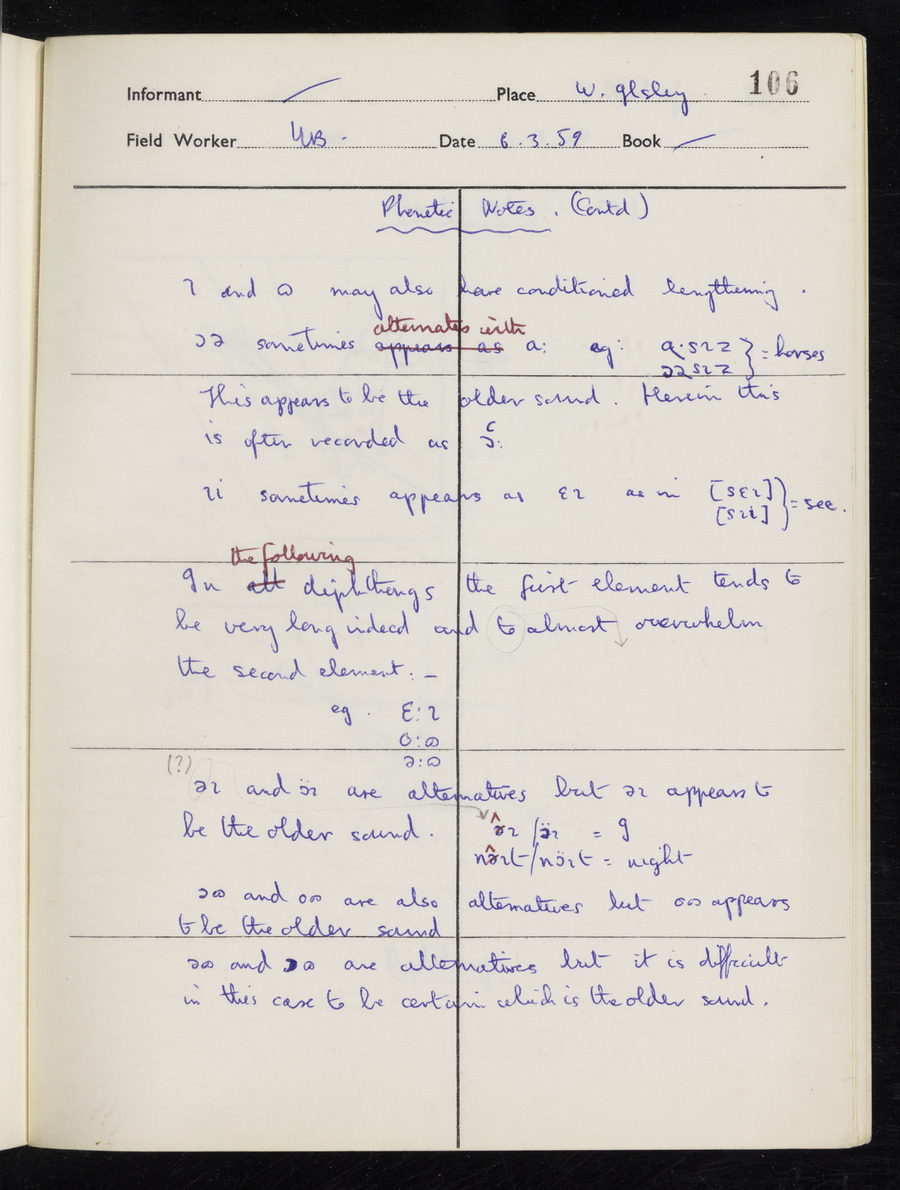 106
Informant Place W. Ilsley.
Field Worker WB. Date 6.3.59 Book
Phonetic Notes. (Contd)
ɩ and ɷ may also have conditioned lengthening.
alternates with
ɔə sometimes appears as ɑ: eg: ɑ·sɩz } = horses
ɔəsɩz
This appears to be the older sound. Herein this
is often recorded as ɔ:
ɩi sometimes appears as ɛɩ as in [sɛɩ] } = see.
[sɩi]
the following
In all diphthongs the first element tends to
be very long indeed and to almost overwhelm
the second element: –
eg. ɛ:ɩ
o:ɷ
ə:ɷ
(?)
əɩ and ɔ̈ɩ are alternatives but əɩ appears to
be the older sound. əɩ / ɔ̈ɩ = I
nəɩt / nɔ̈ɩt = night
ɔɷ and oɷ are also alternatives but oɷ appears
to be the older sound
əɷ and ɔɷ are alternatives but it is difficult
in this case to be certain which is the older sound.